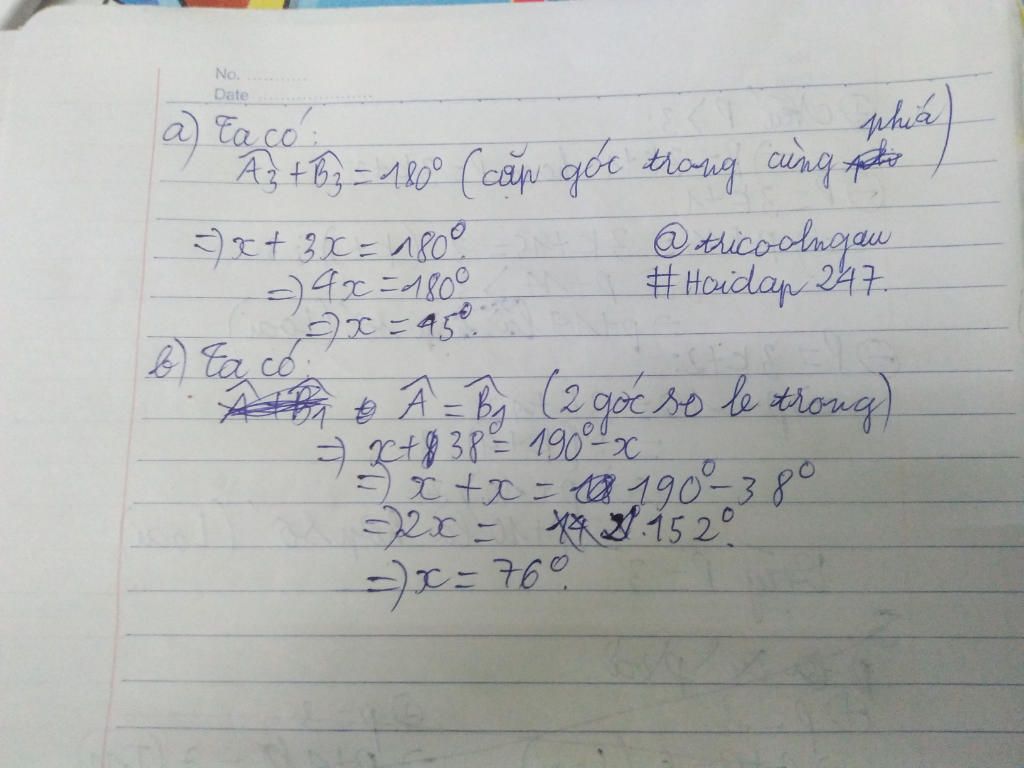 No. ............
Date ........................
a) Ta có:
Â₃ + B̂₃ = 180° (cặp góc trong cùng phía)
=) x + 3x = 180°.
@tricoolngau
=) 4x = 180°
#Hoidap247.
=) x = 45°
b) Ta có:
Â = B̂₁ (2 góc so le trong)
=) x + 38° = 190° - x
=) x + x = 190° - 38°
=) 2x = 152°.
=) x = 76°.